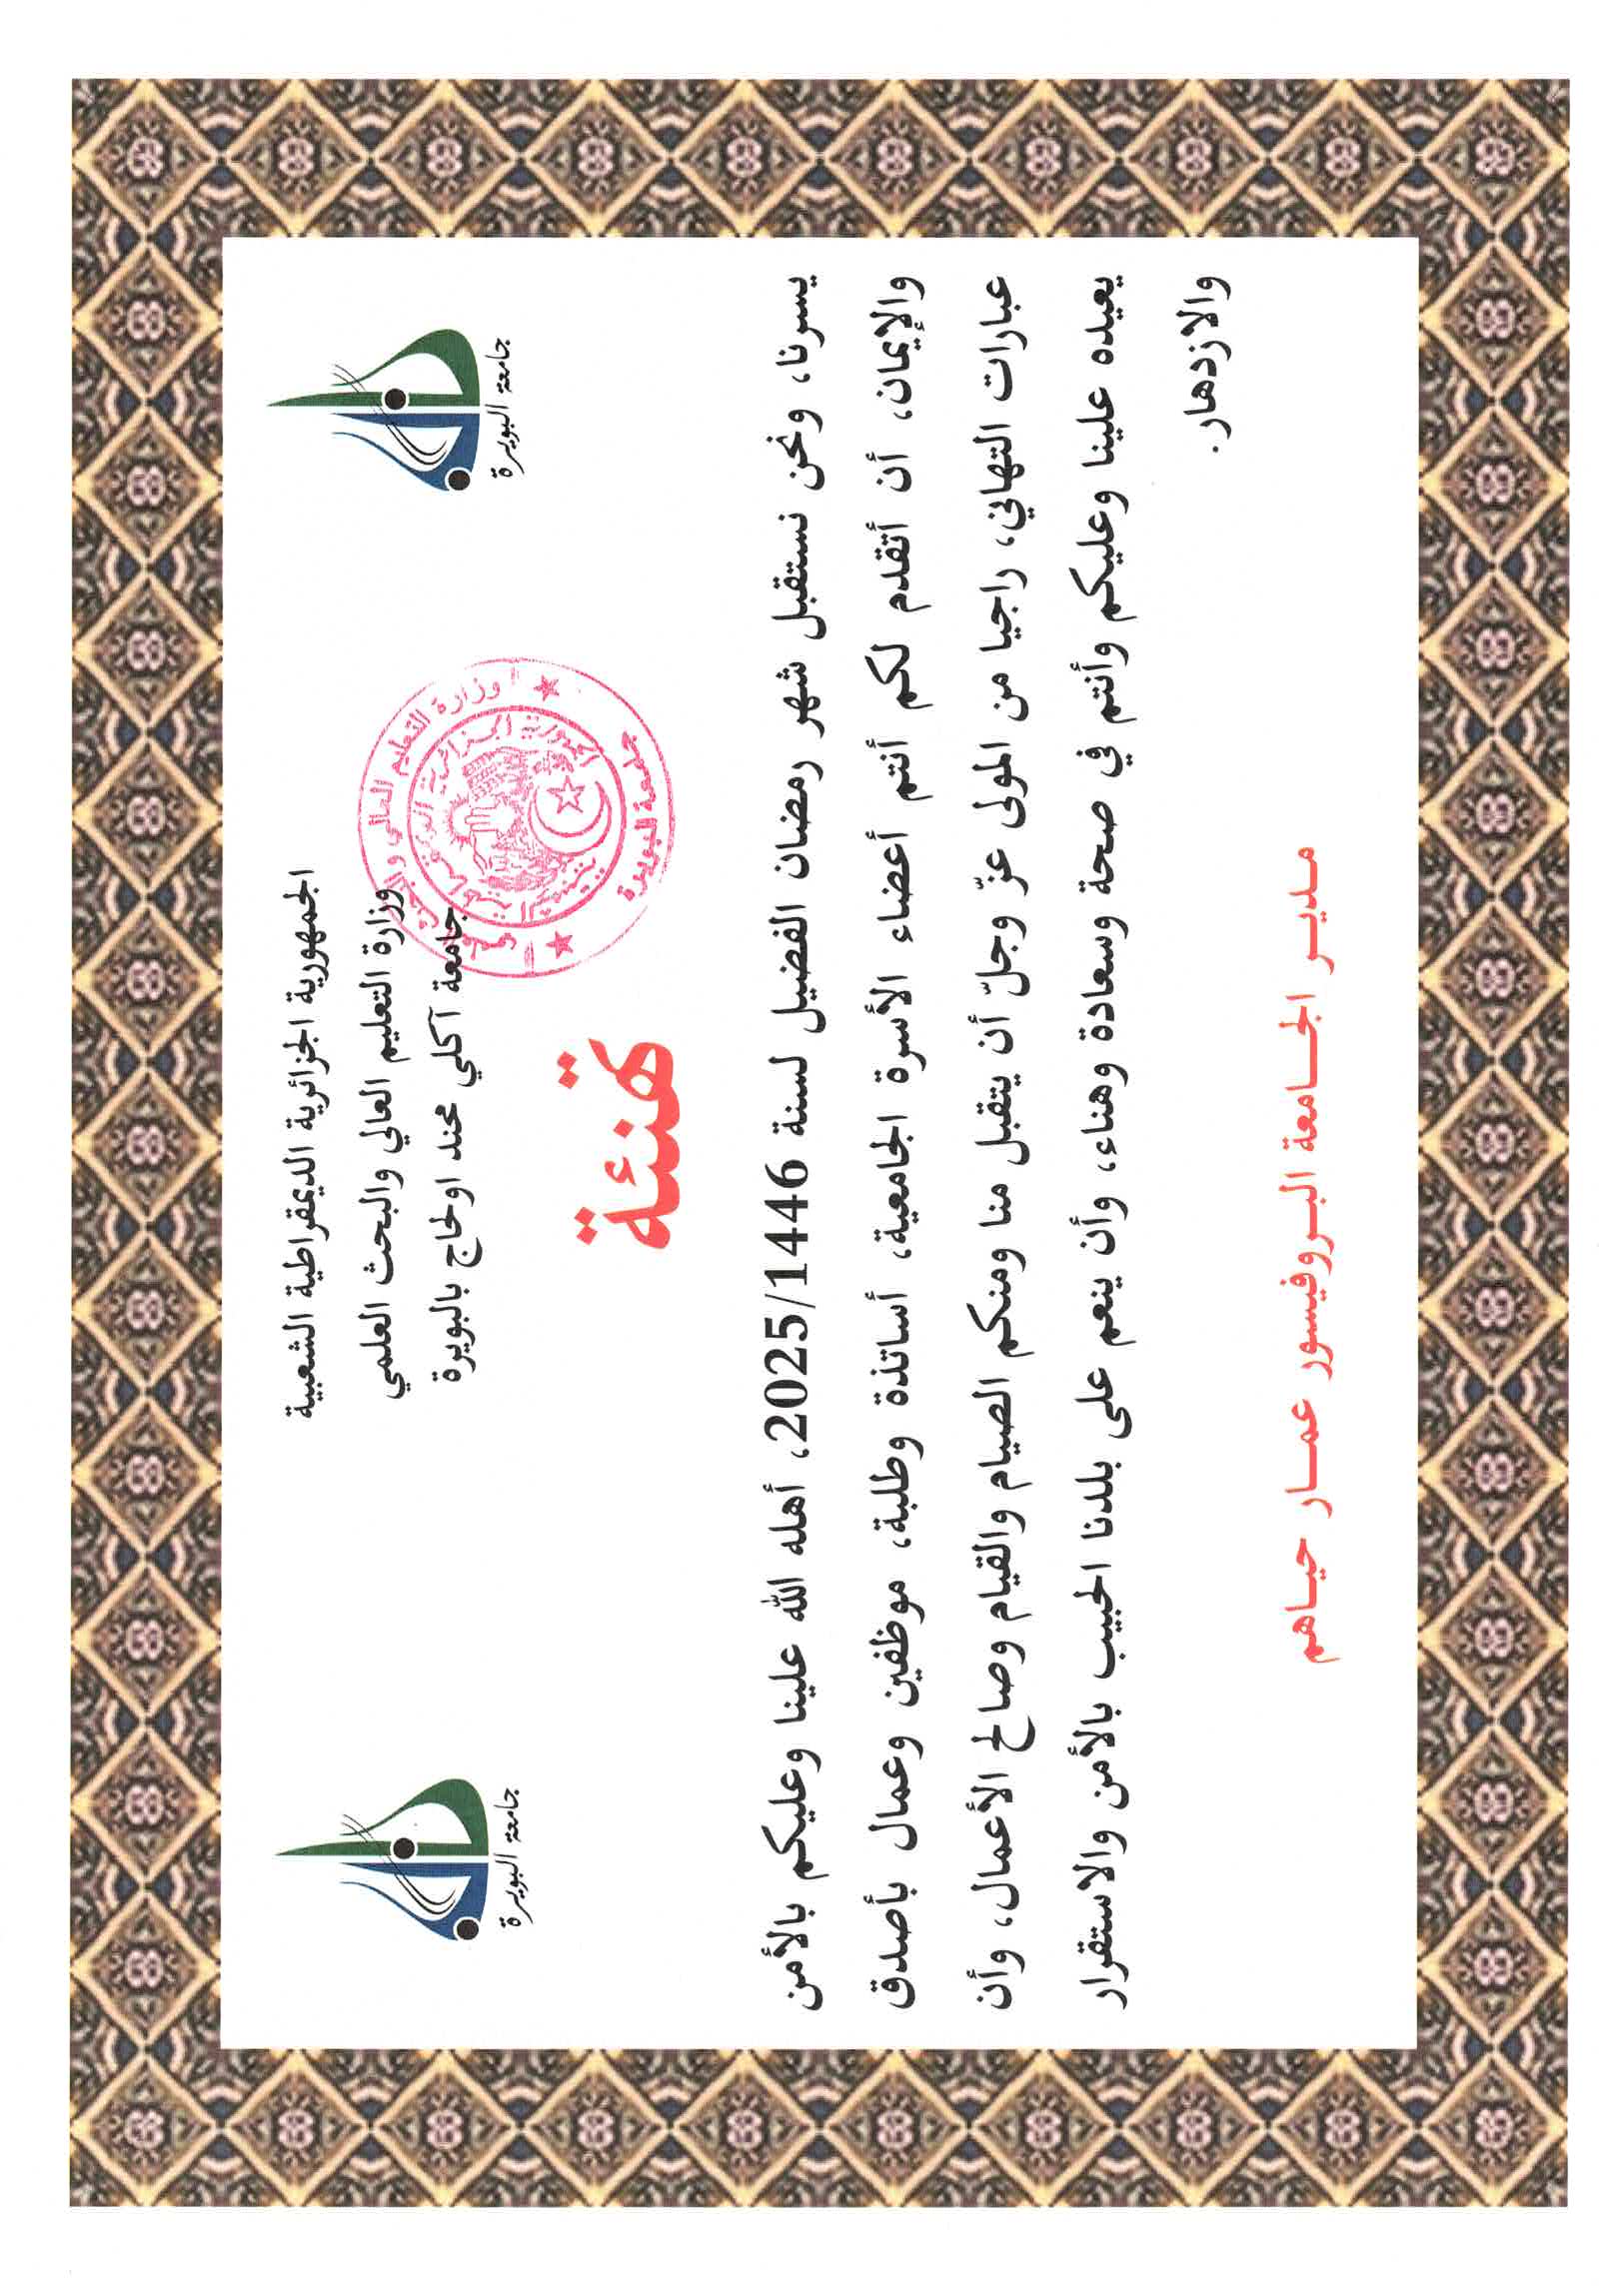 الجمهورية الجزائرية الديمقراطية الشعبية
وزارة التعليم العالي والبحث العلمي
جامعة آكلي محند اولحاج بالبويرة
جامعة البويرة
جامعة البويرة
وزارة التعليم العالي و
جامعة البويرة
تهنئة
يسرنا، ونحن نستقبل شهر رمضان الفضيل لسنة 2025/1446، أهله الله علينا وعليكم بالأمن
والإيمان، أن أتقدم لكم أنتم أعضاء الأسرة الجامعية، أساتذة وطلبة، موظفين وعمال بأصدق
عبارات التهاني، راجيا من المولى عزّ وجلّ أن يتقبل منا ومنكم الصيام والقيام وصالح الأعمال، وأن
يعيده علينا وعليكم وأنتم في صحة وسعادة وهناء، وأن ينعم على بلدنا الحبيب بالأمن والاستقرار
والازدهار.
مديـر الجـامعة البـروفيسور عمـار حيـاهم